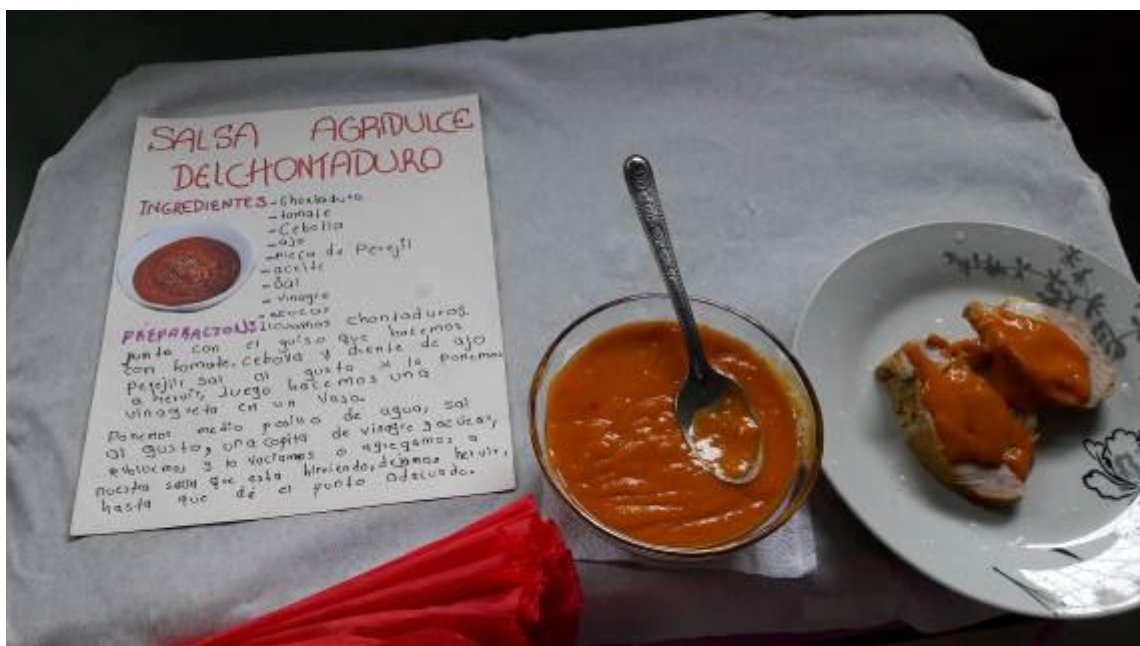 SALSA AGRIDULCE
DELCHONTADURO
INGREDIENTES - Chontaduro
- tomate
- Cebolla
- ajo
- Pizca de Perejil
- aceite
- Sal
- vinagre
- azucar
PREPARACION: licuamos chontaduros
junto con el guiso que hacemos
con tomate, cebolla y diente de ajo
Perejil, sal al gusto y lo ponemos
a hervir, luego hacemos una
vinagreta en un vaso.
Ponemos medio posillo de agua, sal
al gusto, una copita de vinagre y azucar,
y lo vaciamos o agregamos a
nuestra salsa que esta hirviendo, dejamos hervir,
hasta que dé el punto adecuado.